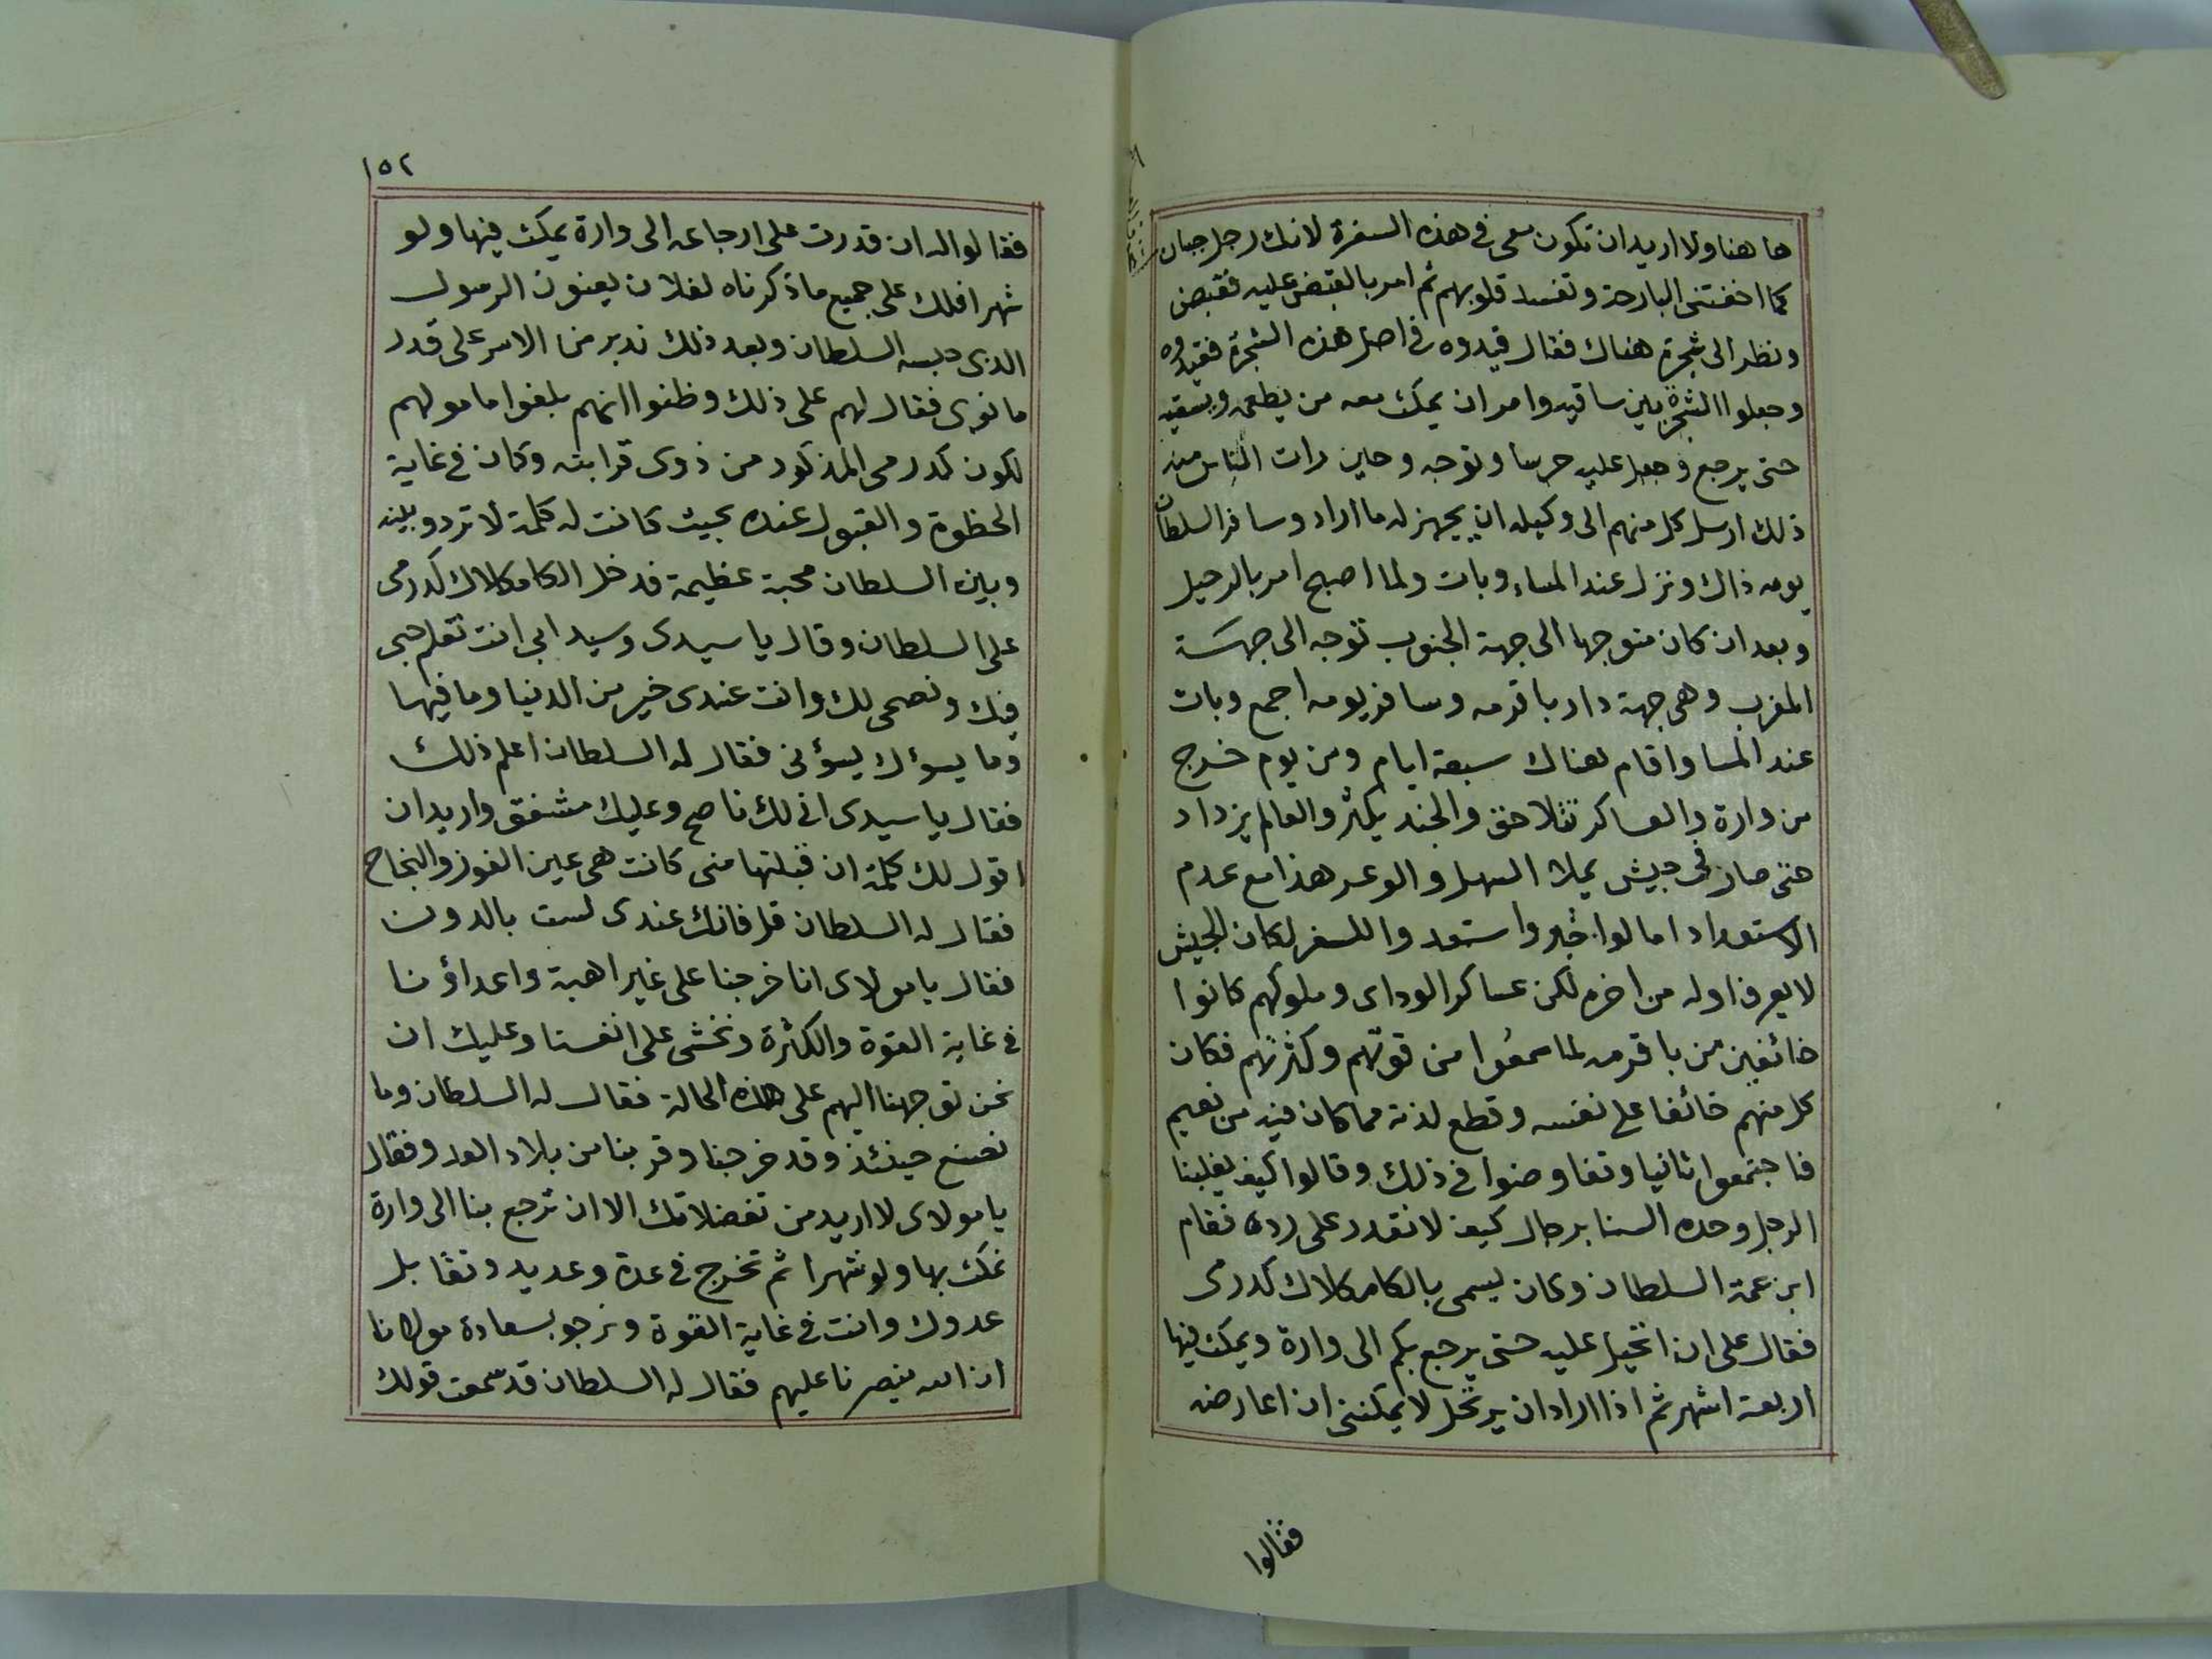 هاهنا ولا اريد ان تكون معى فى هذه السفرة لانك رجل جبان
كما اخفتنى البارحة وتفسد قلوبهم ثم امر بالقبض عليه فقبض
ونظر الى شجرة هناك فقال قيدوه فى اصل هذه الشجرة فقيدوه
وجعلوا الشجرة بين ساقيه وامر ان يمكث معه من يطعمه ويسقيه
حتى يرجع وجعل عليه حرسا وتوجه وحين رات الناس منه
ذلك ارسل كل منهم الى وكيله ان يجهز له ما اراد وسافر السلطان
يومه ذاك ونزل عند المساء وبات ولما اصبح امر بالرحيل
وبعد ان كان متوجها الى جهة الجنوب توجه الى جهة
المغرب وهى جهة دار باقرمه وسافر يومه اجمع وبات
عند المسا واقام هناك سبعة ايام ومن يوم خرج
من وارة والعساكر تتلاحق والجند يكثر والعالم يزداد
حتى صار فى جيش يملا السهل والوعر هذا مع عدم
الاستعداد اما لو اخبروا استعدوا للسفر لكان الجيش
لا يعرف اوله من اخره لكن عساكر الوداى وملوكهم كانوا
خائفين من باقرمه لما سمعوا من قوتهم وكثرتهم فكان
كل منهم خائفا على نفسه وقطع لذته مما كان فيه من نعيم
فاجتمعوا ثانيا وتفاوضوا فى ذلك وقالوا كيف يغلبنا
الرجل وحده السنا برجال كيف لا نقدر على رده فقام
ابن عمة السلطان وكان يسمى بالكامكلاك كدرمى
فقال على ان اتحيل عليه حتى يرجع بكم الى وارة ويمكث فيها
اربعة اشهر ثم اذا اراد ان يرتحل لا يمكننى ان اعارضه
فقالوا
١٥٢
فقالوا له ان قدرت على ارجاعه الى وارة يمكث فيها ولو
شهرا فلك على جميع ما ذكرناه لفلان يعنون الرسول
الذى حبسه السلطان وبعد ذلك ندبر من الامر على قدر
ما نوى فقال لهم على ذلك وظنوا انهم بلغوا مامولهم
لكون كدرمى المذكور من ذوى قرابته وكان فى غاية
الحظوة والقبول عنده بحيث كانت له كلمة لا ترد وبينه
وبين السلطان محبة عظيمة فدخل الكامكلاك كدرمى
على السلطان وقال يا سيدى وسيد ابى انت تعلم حبى
فيك ونصحى لك وانت عندى خير من الدنيا وما فيها
وما يسوٴك يسوٴنى فقال له السلطان اعلم ذلك
فقال يا سيدى انى لك ناصح وعليك مشفق واريد ان
اقول لك كلمة ان قبلتها منى كانت هى عين الفوز والنجاح
فقال له السلطان قل فانك عندى لست بالدون
فقال يا مولاى انا خرجنا على غير اهبة واعداؤنا
فى غاية القوة والكثرة ونخشى على انفسنا وعليك ان
نحن توجهنا اليهم على هذه الحالة فقال له السلطان وما
نصنع حينئذ وقد خرجنا وقربنا من بلاد العدو فقال
يا مولاى لا اريد من تفضلاتك الا ان ترجع بنا الى وارة
نمكث بها ولو شهرا ثم تخرج فى عدة وعديد وتقابل
عدوك وانت فى غاية القوة ونرجو بسعادة مولانا
ان الله ينصرنا عليهم فقال له السلطان قد سمعت قولك